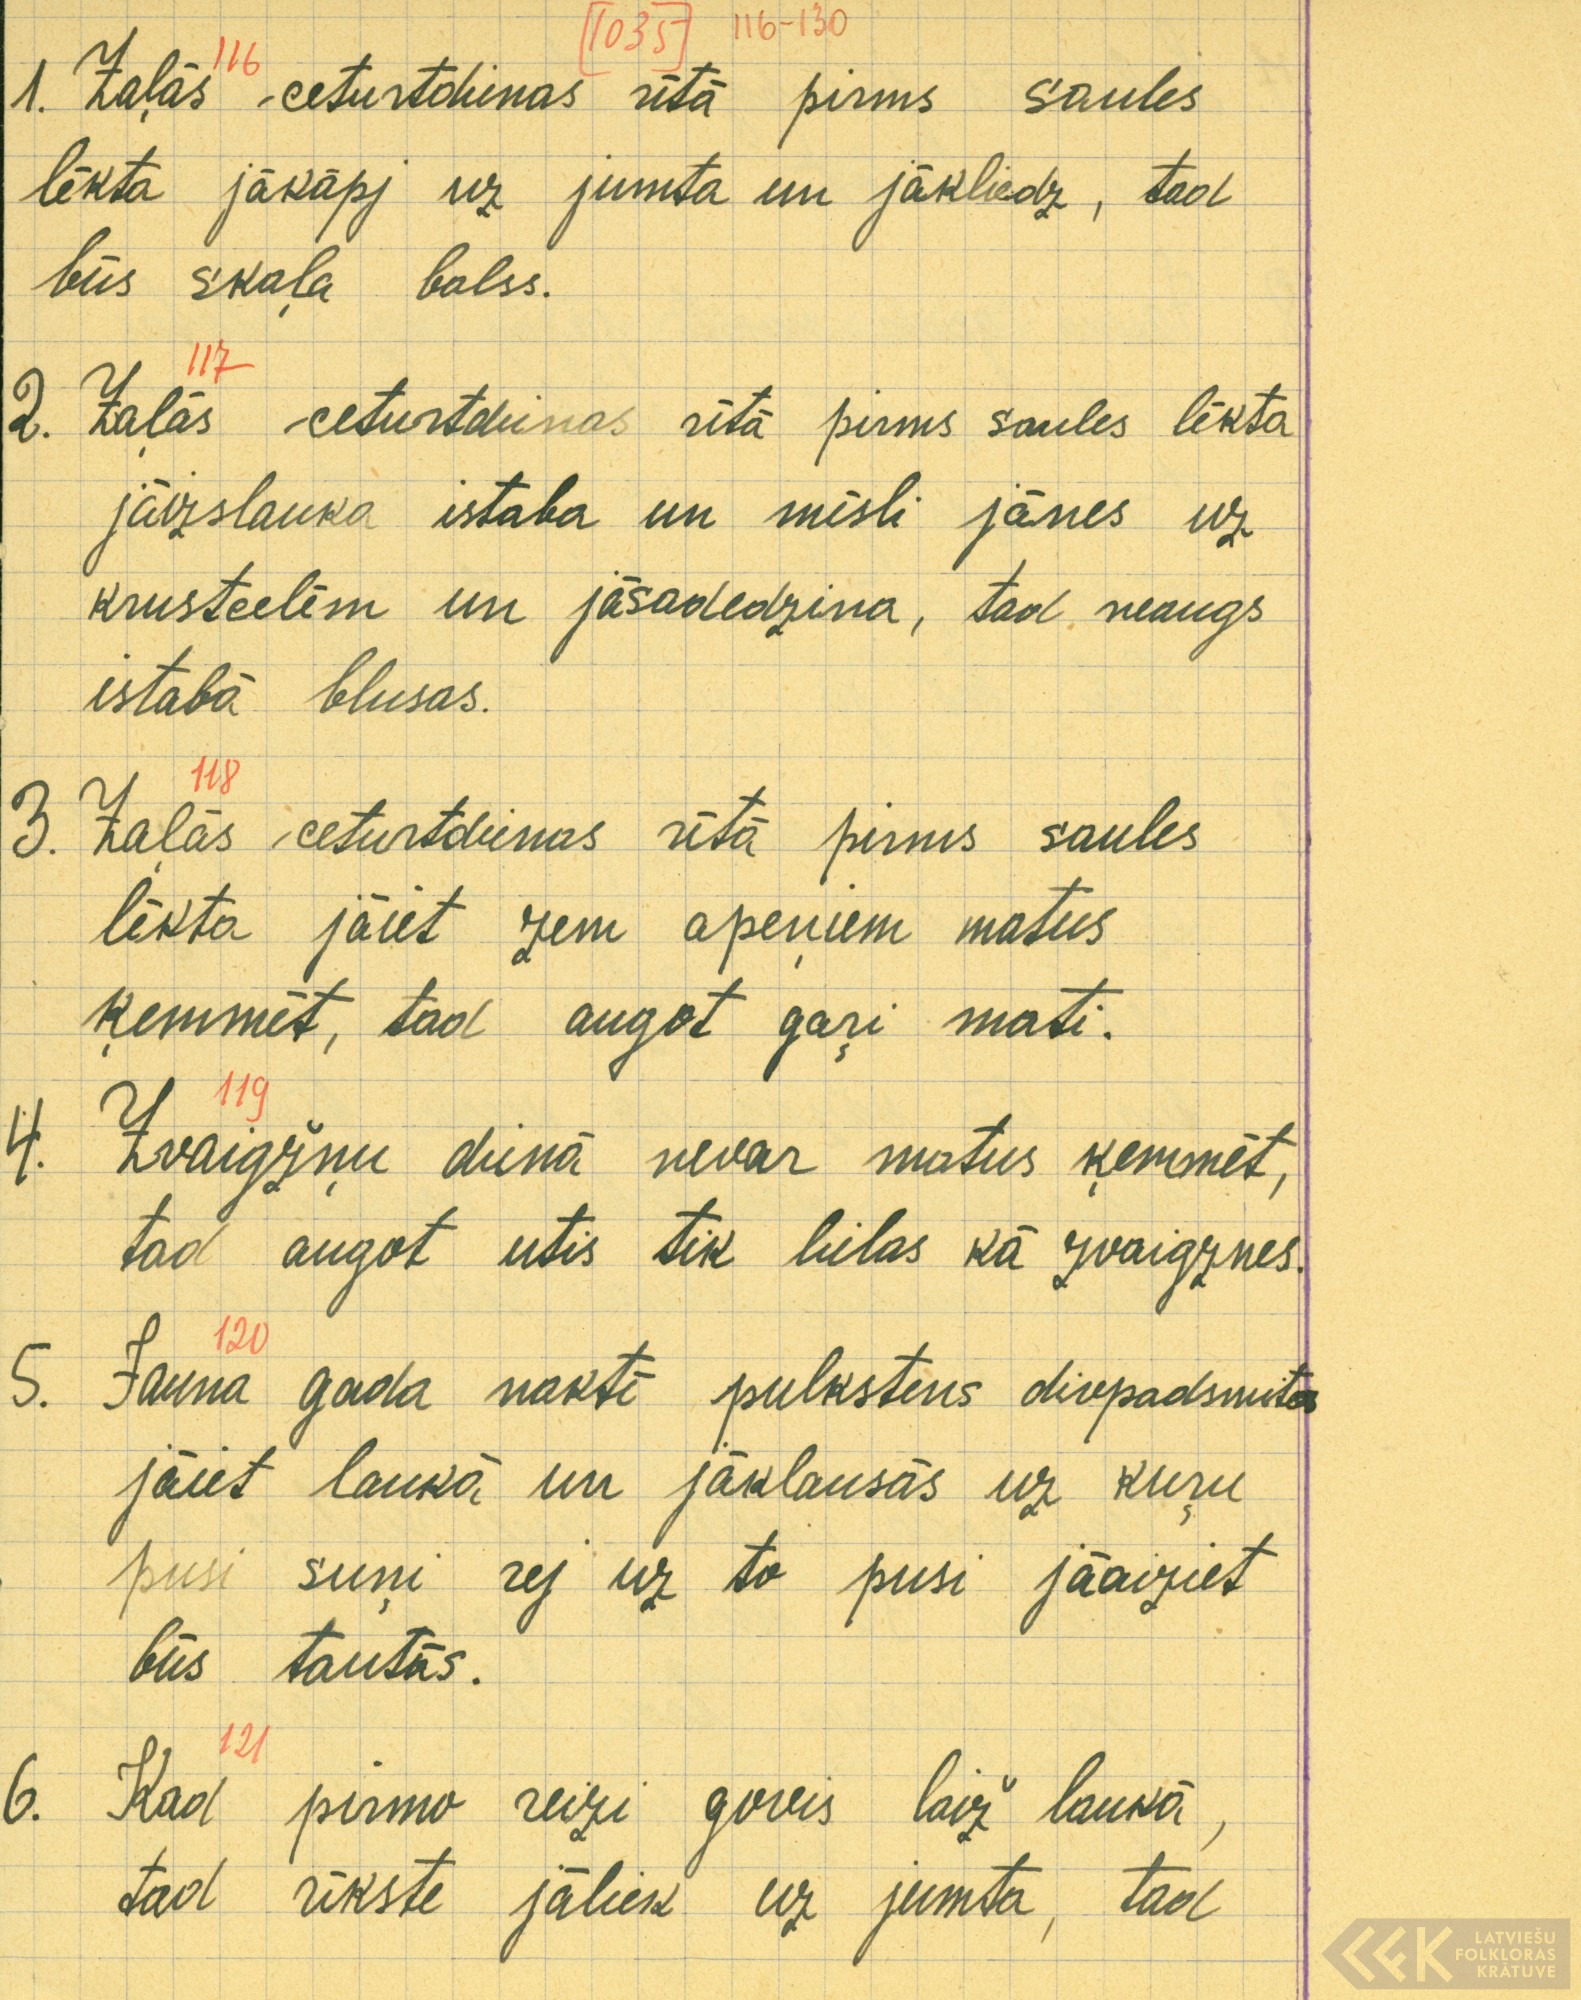 [1035] 116-130
116
1. Zaļās ceturtdienas rītā pirms saules
lēkta jākāpj uz jumta un jākliedz, tad
būs skaļa balss.
117
2. Zaļās ceturtdienas rītā pirms saules lēkta
jāizslauka istaba un mēsli jānes uz
krustcelēm un jāsadedzina, tad neaugs
istabā blusas.
118
3. Zaļās ceturtdienas rītā pirms saules
lēkta jāiet zem apeņiem matus
ķemmēt, tad augot gaŗi mati.
119
4. Zvaigžņu dienā nevar matus ķemmēt,
tad augot utis tik lielas kā zvaigznes.
120
5. Jauna gada naktī pulkstens divpadsmitos
jāiet laukā un jāklausās uz kuŗu
pusi suņi rej uz to pusi jāaiziet
būs tautās.
121
6. Kad pirmo reizi govis laiž laukā,
tad rīkste jāliek uz jumta, tad
LATVIEŠU
FOLKLORAS
KRĀTUVE